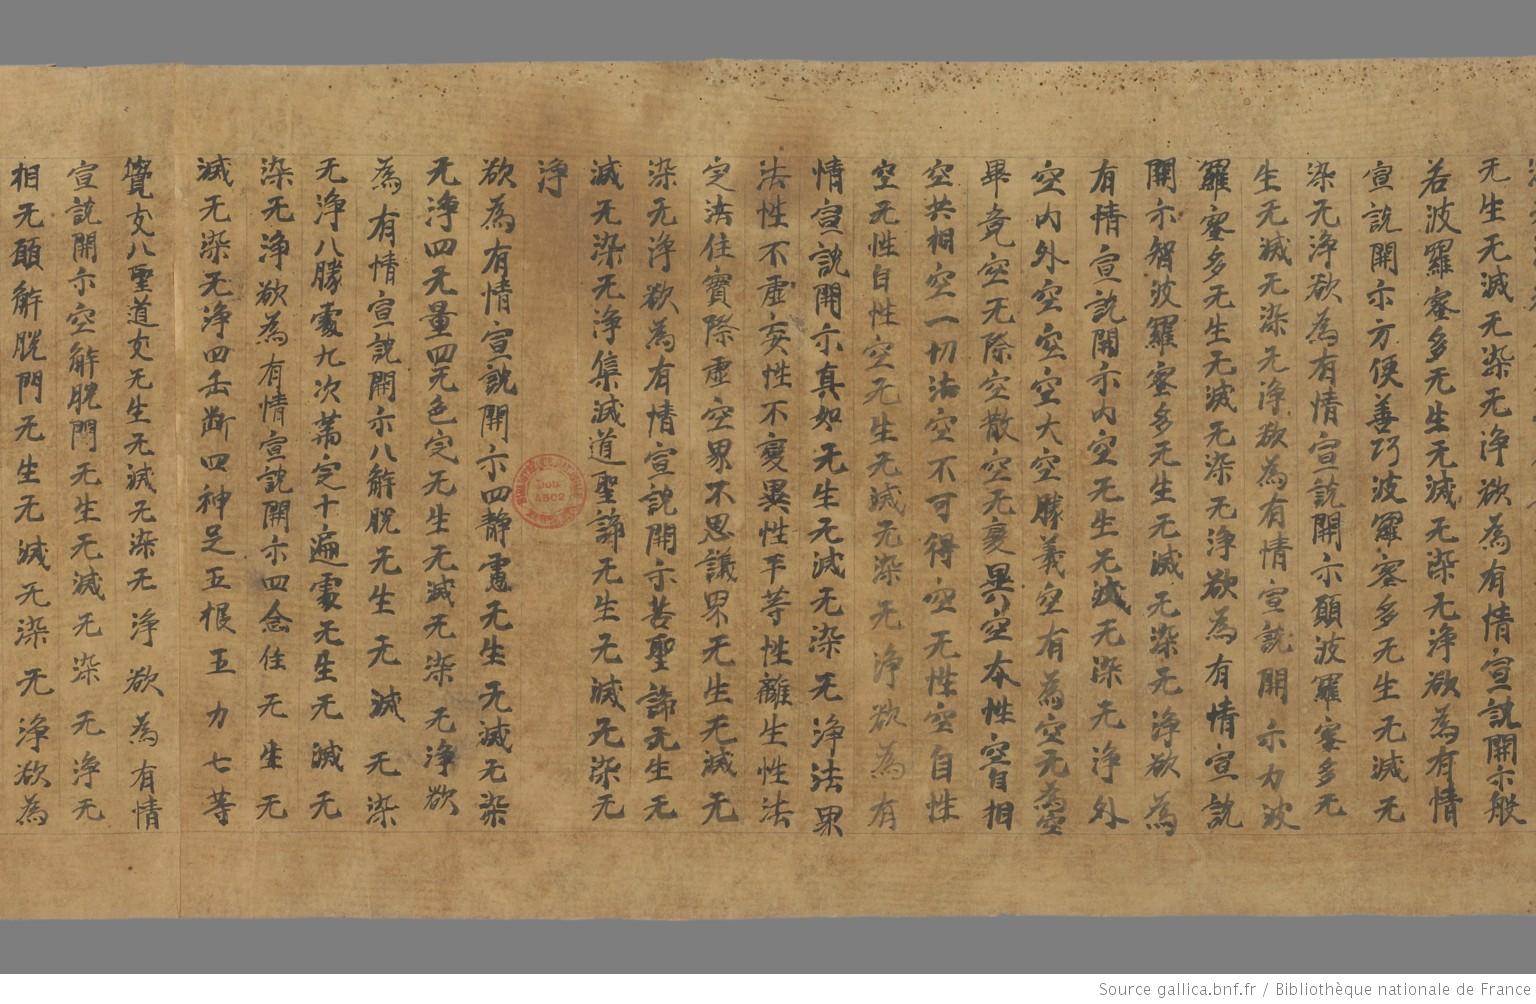 无生无滅无染无净欲為有情宣說開示般
若波羅蜜多无生无滅无染无净欲為有情
宣說開示方便善巧波羅蜜多无生无滅无
染无净欲為有情宣說開示願波羅蜜多无
生无滅无染无净欲為有情宣說開示力波
羅蜜多无生无滅无染无净欲為有情宣說
開示智波羅蜜多无生无滅无染无净欲為
有情宣說開示内空无生无滅无染无净外
空内外空空空大空勝義空有為空无為空
畢竟空无際空散空无變異空本性空自相
空共相空一切法空不可得空无性空自性
空无性自性空无生无滅无染无净欲為有
情宣說開示真如无生无滅无染无净法界
法性不虛妄性不變異性平等性離生性法
定法住實際虛空界不思議界无生无滅无
染无净欲為有情宣說開示苦聖諦无生无
滅无染无净集滅道聖諦无生无滅无染无
净
欲為有情宣說開示四靜慮无生无滅无染
无净四无量四无色定无生无滅无染无净欲
為有情宣說開示八解脫无生无滅无染
无净八勝處九次第定十遍處无生无滅无
染无净欲為有情宣說開示四念住无生无
滅无染无净四正斷四神足五根五力七等
覺支八聖道支无生无滅无染无净欲為有情
宣說開示空解脫門无生无滅无染无净无
相无願解脫門无生无滅无染无净欲為
Don 4502
Source gallica.bnf.fr / Bibliothèque nationale de France